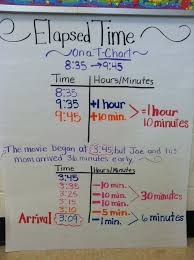 Elapsed Time
on a T-Chart
8:35 → 9:45
Time Hours/Minutes
8:35
9:35 +1 hour
9:45 +10 min.
=1 hour
10 minutes
The movie began at 3:45, but Joe and his
mom arrived 36 minutes early.
Time Hours/Minutes
3:45
3:35 -10 min.
3:25 -10 min.
3:15 -10 min.
30 minutes
3:10 -5 min.
Arrival 3:09 -1 min.
6 minutes